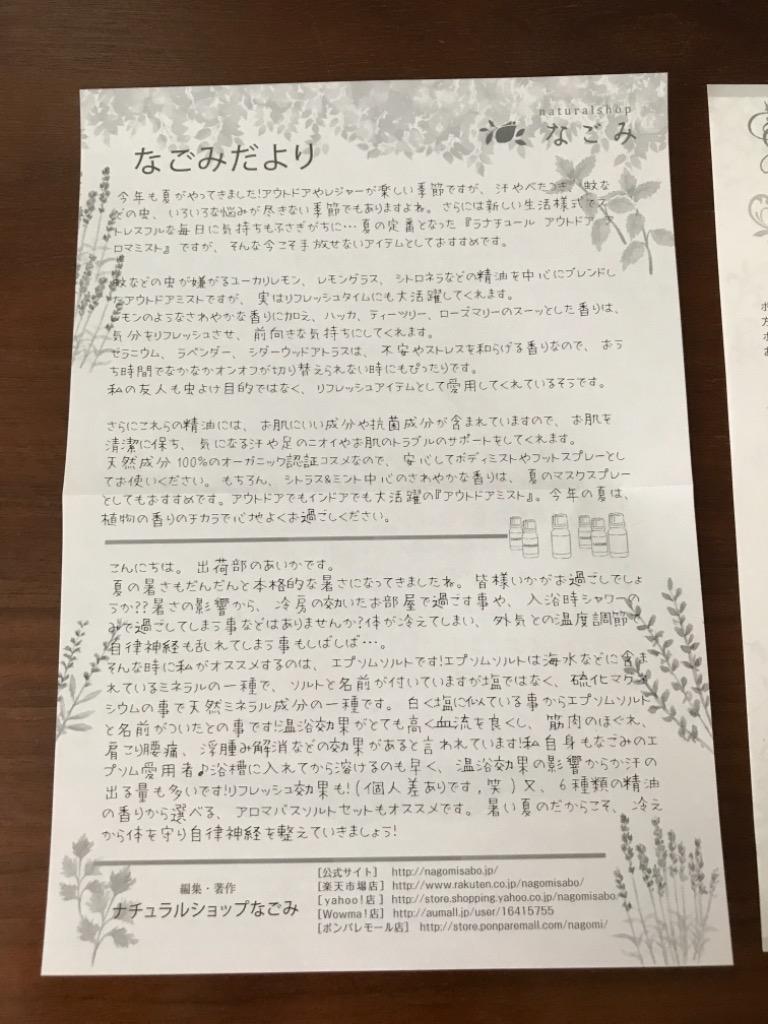 naturalshop
なごみ
なごみだより
今年も夏がやってきました!アウトドアやレジャーが楽しい季節ですが、汗やべたつき、蚊な
どの虫、いろいろな悩みが尽きない季節でもありますよね。さらには新しい生活様式でス
トレスフルな毎日に気持ちもふさぎがちに…夏の定番となった『ラナチュール アウトドア ア
ロマミスト』ですが、そんな今こそ手放せないアイテムとしておすすめです。
蚊などの虫が嫌がるユーカリレモン、レモングラス、シトロネラなどの精油を中心にブレンドし
たアウトドアミストですが、実はリフレッシュタイムにも大活躍してくれます。
レモンのようなさわやかな香りに加え、ハッカ、ティーツリー、ローズマリーのスーッとした香りは、
気分をリフレッシュさせ、前向きな気持ちにしてくれます。
ゼラニウム、ラベンダー、シダーウッドアトラスは、不安やストレスを和らげる香りなので、おう
ち時間でなかなかオンオフが切り替えられない時にもぴったりです。
私の友人も虫よけ目的ではなく、リフレッシュアイテムとして愛用してくれているそうです。
さらにこれらの精油には、お肌にいい成分や抗菌成分が含まれていますので、お肌を
清潔に保ち、気になる汗や足のニオイやお肌のトラブルのサポートをしてくれます。
天然成分100%のオーガニック認証コスメなので、安心してボディミストやフットスプレーとし
てお使いください。もちろん、シトラス&ミント中心のさわやかな香りは、夏のマスクスプレー
としてもおすすめです。アウトドアでもインドアでも大活躍の『アウトドアミスト』。今年の夏は、
植物の香りのチカラで心地よくお過ごしください。
こんにちは。出荷部のあいかです。
夏の暑さもだんだんと本格的な暑さになってきましたね。皆様いかがお過ごしでしょ
うか??暑さの影響から、冷房の効いたお部屋で過ごす事や、入浴時シャワーの
みで過ごしてしまう事などはありませんか?体が冷えてしまい、外気との温度調節で
自律神経も乱れてしまう事もしばしば…。
そんな時に私がオススメするのは、エプソムソルトです!エプソムソルトは海水などに含ま
れているミネラルの一種で、ソルトと名前が付いていますが塩ではなく、硫化マグネ
シウムの事で天然ミネラル成分の一種です。白く塩に似ている事からエプソムソルト
と名前がついたとの事です!温浴効果がとても高く血流を良くし、筋肉のほぐれ、
肩こり腰痛、浮腫み解消などの効果があると言われています!私自身もなごみのエ
プソム愛用者♪浴槽に入れてから溶けるのも早く、温浴効果の影響からか汗の
出る量も多いです!リフレッシュ効果も!(個人差ありです,笑)又、6種類の精油
の香りから選べる、アロマバスソルトセットもオススメです。暑い夏のだからこそ、冷え
から体を守り自律神経を整えていきましょう!
編集・著作
ナチュラルショップなごみ
[公式サイト] http://nagomisabo.jp/
[楽天市場店] http://www.rakuten.co.jp/nagomisabo/
[yahoo!店] http://store.shopping.yahoo.co.jp/nagomisabo
[Wowma!店] http://aumall.jp/user/16415755
[ポンパレモール店] http://store.ponparemall.com/nagomi/